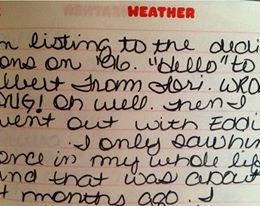 WEATHER
n listing to the dedi
ons on '96. "Hello" to
lbert from Lori. WRO
NG! Oh well. Then I
went out with Eddi
. I only saw him
once in my whole lif
and that was about
4 months ago. I